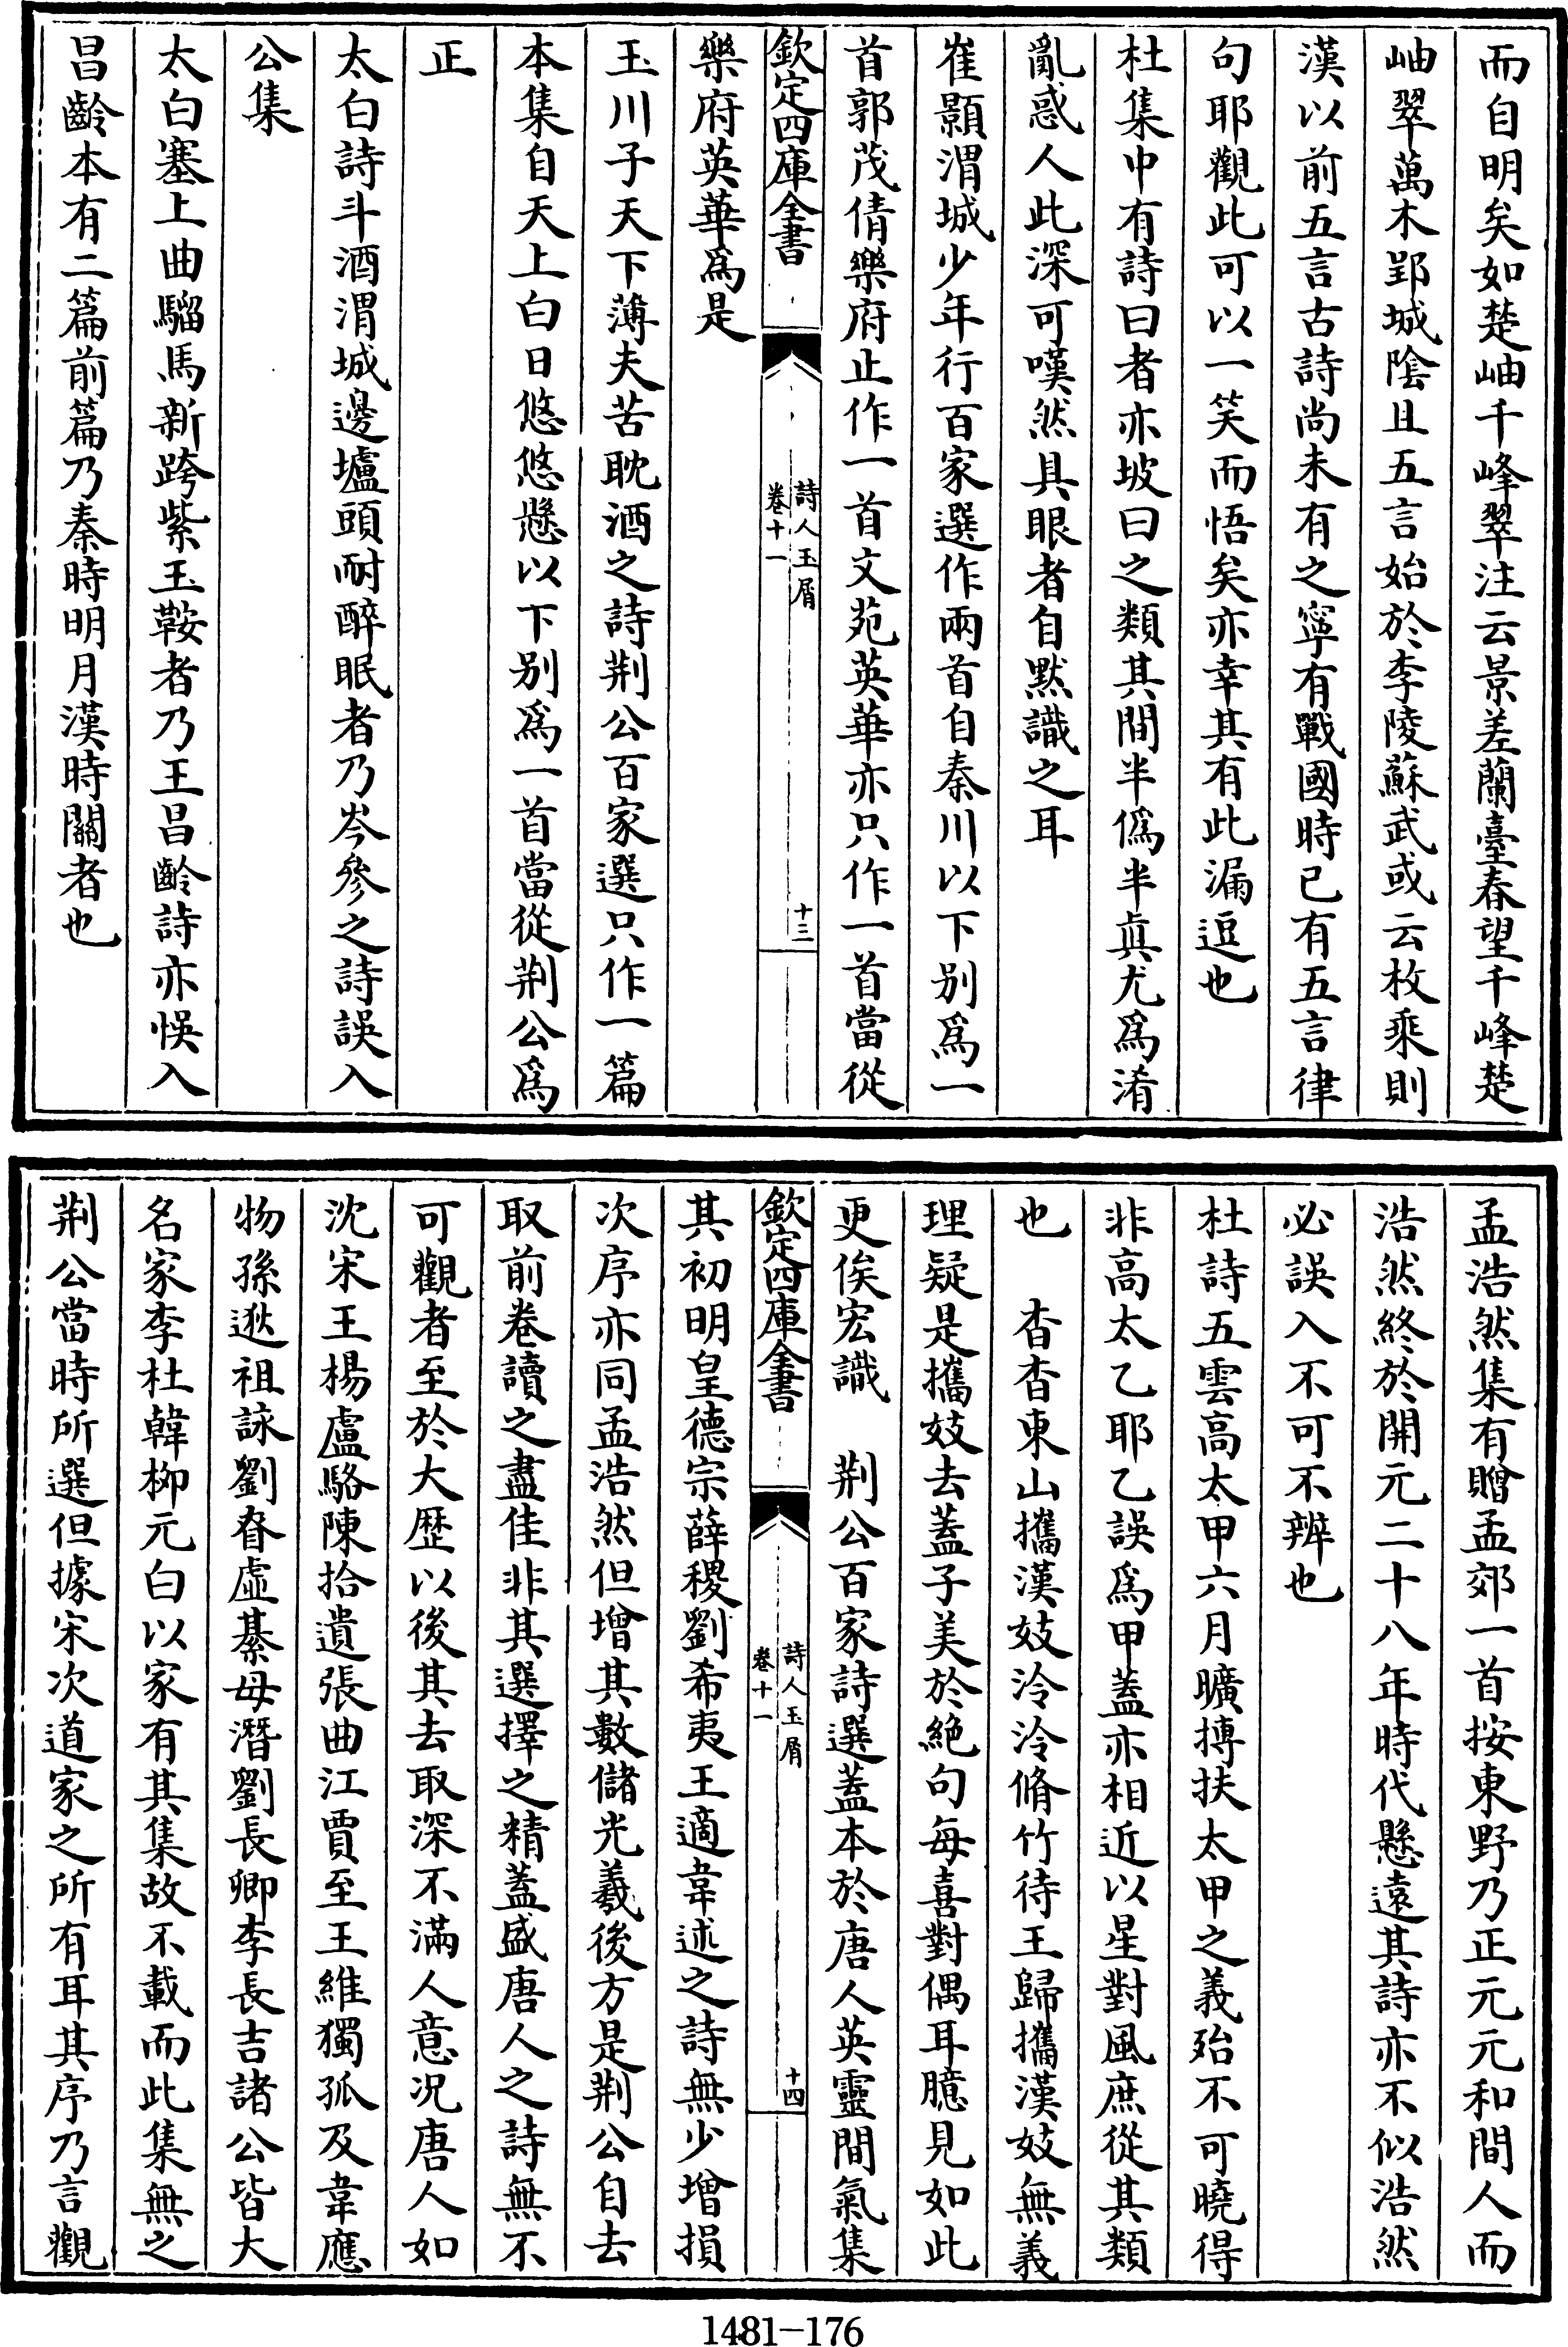 而自明矣如楚岫千峰翠注云景差蘭臺春望千峰楚
岫翠萬木郢城陰且五言始於李陵蘇武或云枚乘則
漢以前五言古詩尚未有之寧有戰國時已有五言律
句耶觀此可以一笑而悟矣亦幸其有此漏逗也
杜集中有詩曰者亦坡曰之類其間半偽半真尤為淆
亂惑人此深可嘆然具眼者自默識之耳
崔顥渭城少年行百家選作兩首自秦川以下别為一
首郭茂倩樂府止作一首文苑英華亦只作一首當從
欽定四庫全書
詩人玉屑
卷十一
十三
樂府英華為是
玉川子天下薄夫苦耽酒之詩荆公百家選只作一篇
本集自天上白日悠悠懸以下别為一首當從荆公為
正
太白詩斗酒渭城邊壚頭耐醉眠者乃岑參之詩誤入
公集
太白塞上曲騮馬新跨紫玉鞍者乃王昌齡詩亦悞入
昌齡本有二篇前篇乃秦時明月漢時關者也
孟浩然集有贈孟郊一首按東野乃正元元和間人而
浩然終於開元二十八年時代懸遠其詩亦不似浩然
必誤入不可不辨也
杜詩五雲高太甲六月曠摶扶太甲之義殆不可曉得
非高太乙耶乙誤為甲蓋亦相近以星對風庶從其類
也　杳杳東山攜漢妓泠泠脩竹待王歸攜漢妓無義
理疑是攜妓去蓋子美於絶句每喜對偶耳臆見如此
更俟宏識　荆公百家詩選蓋本於唐人英靈間氣集
欽定四庫全書
詩人玉屑
卷十一
十四
其初明皇德宗薛稷劉希夷王適韋述之詩無少增損
次序亦同孟浩然但增其數儲光羲後方是荆公自去
取前卷讀之盡佳非其選擇之精蓋盛唐人之詩無不
可觀者至於大歴以後其去取深不滿人意况唐人如
沈宋王楊盧駱陳拾遺張曲江賈至王維獨孤及韋應
物孫逖祖詠劉眘虛綦毋潛劉長卿李長吉諸公皆大
名家李杜韓栁元白以家有其集故不載而此集無之
荆公當時所選但據宋次道家之所有耳其序乃言觀
1481-176